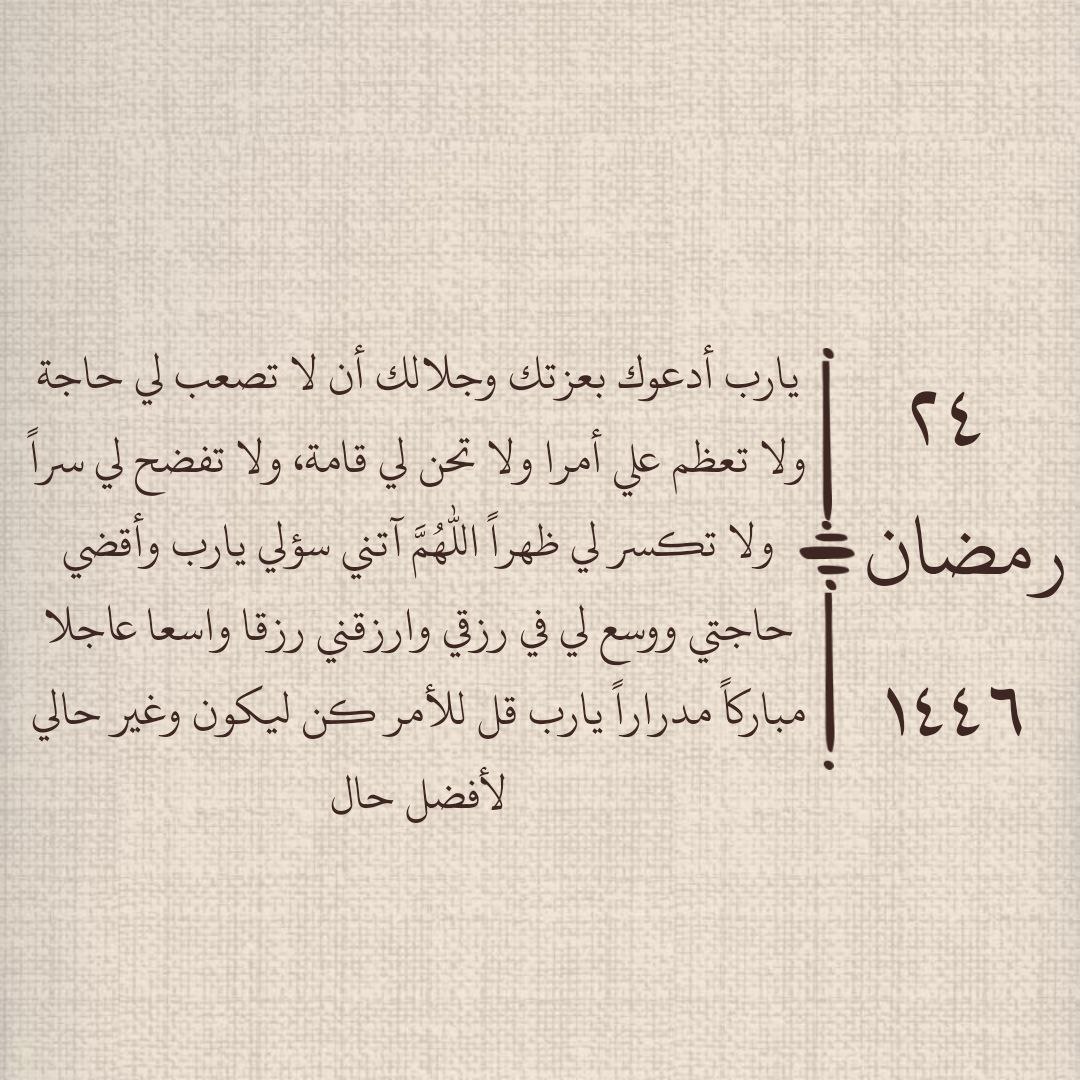 ٢٤
رمضان
١٤٤٦
يارب أدعوك بعزتك وجلالك أن لا تصعب لي حاجة
ولا تعظم علي أمرا ولا تحن لي قامة، ولا تفضح لي سراً
ولا تكسر لي ظهراً اللهُمَّ آتني سؤلي يارب وأقضي
حاجتي ووسع لي في رزقي وارزقني رزقا واسعا عاجلا
مباركاً مدراراً يارب قل للأمر كن ليكون وغير حالي
لأفضل حال